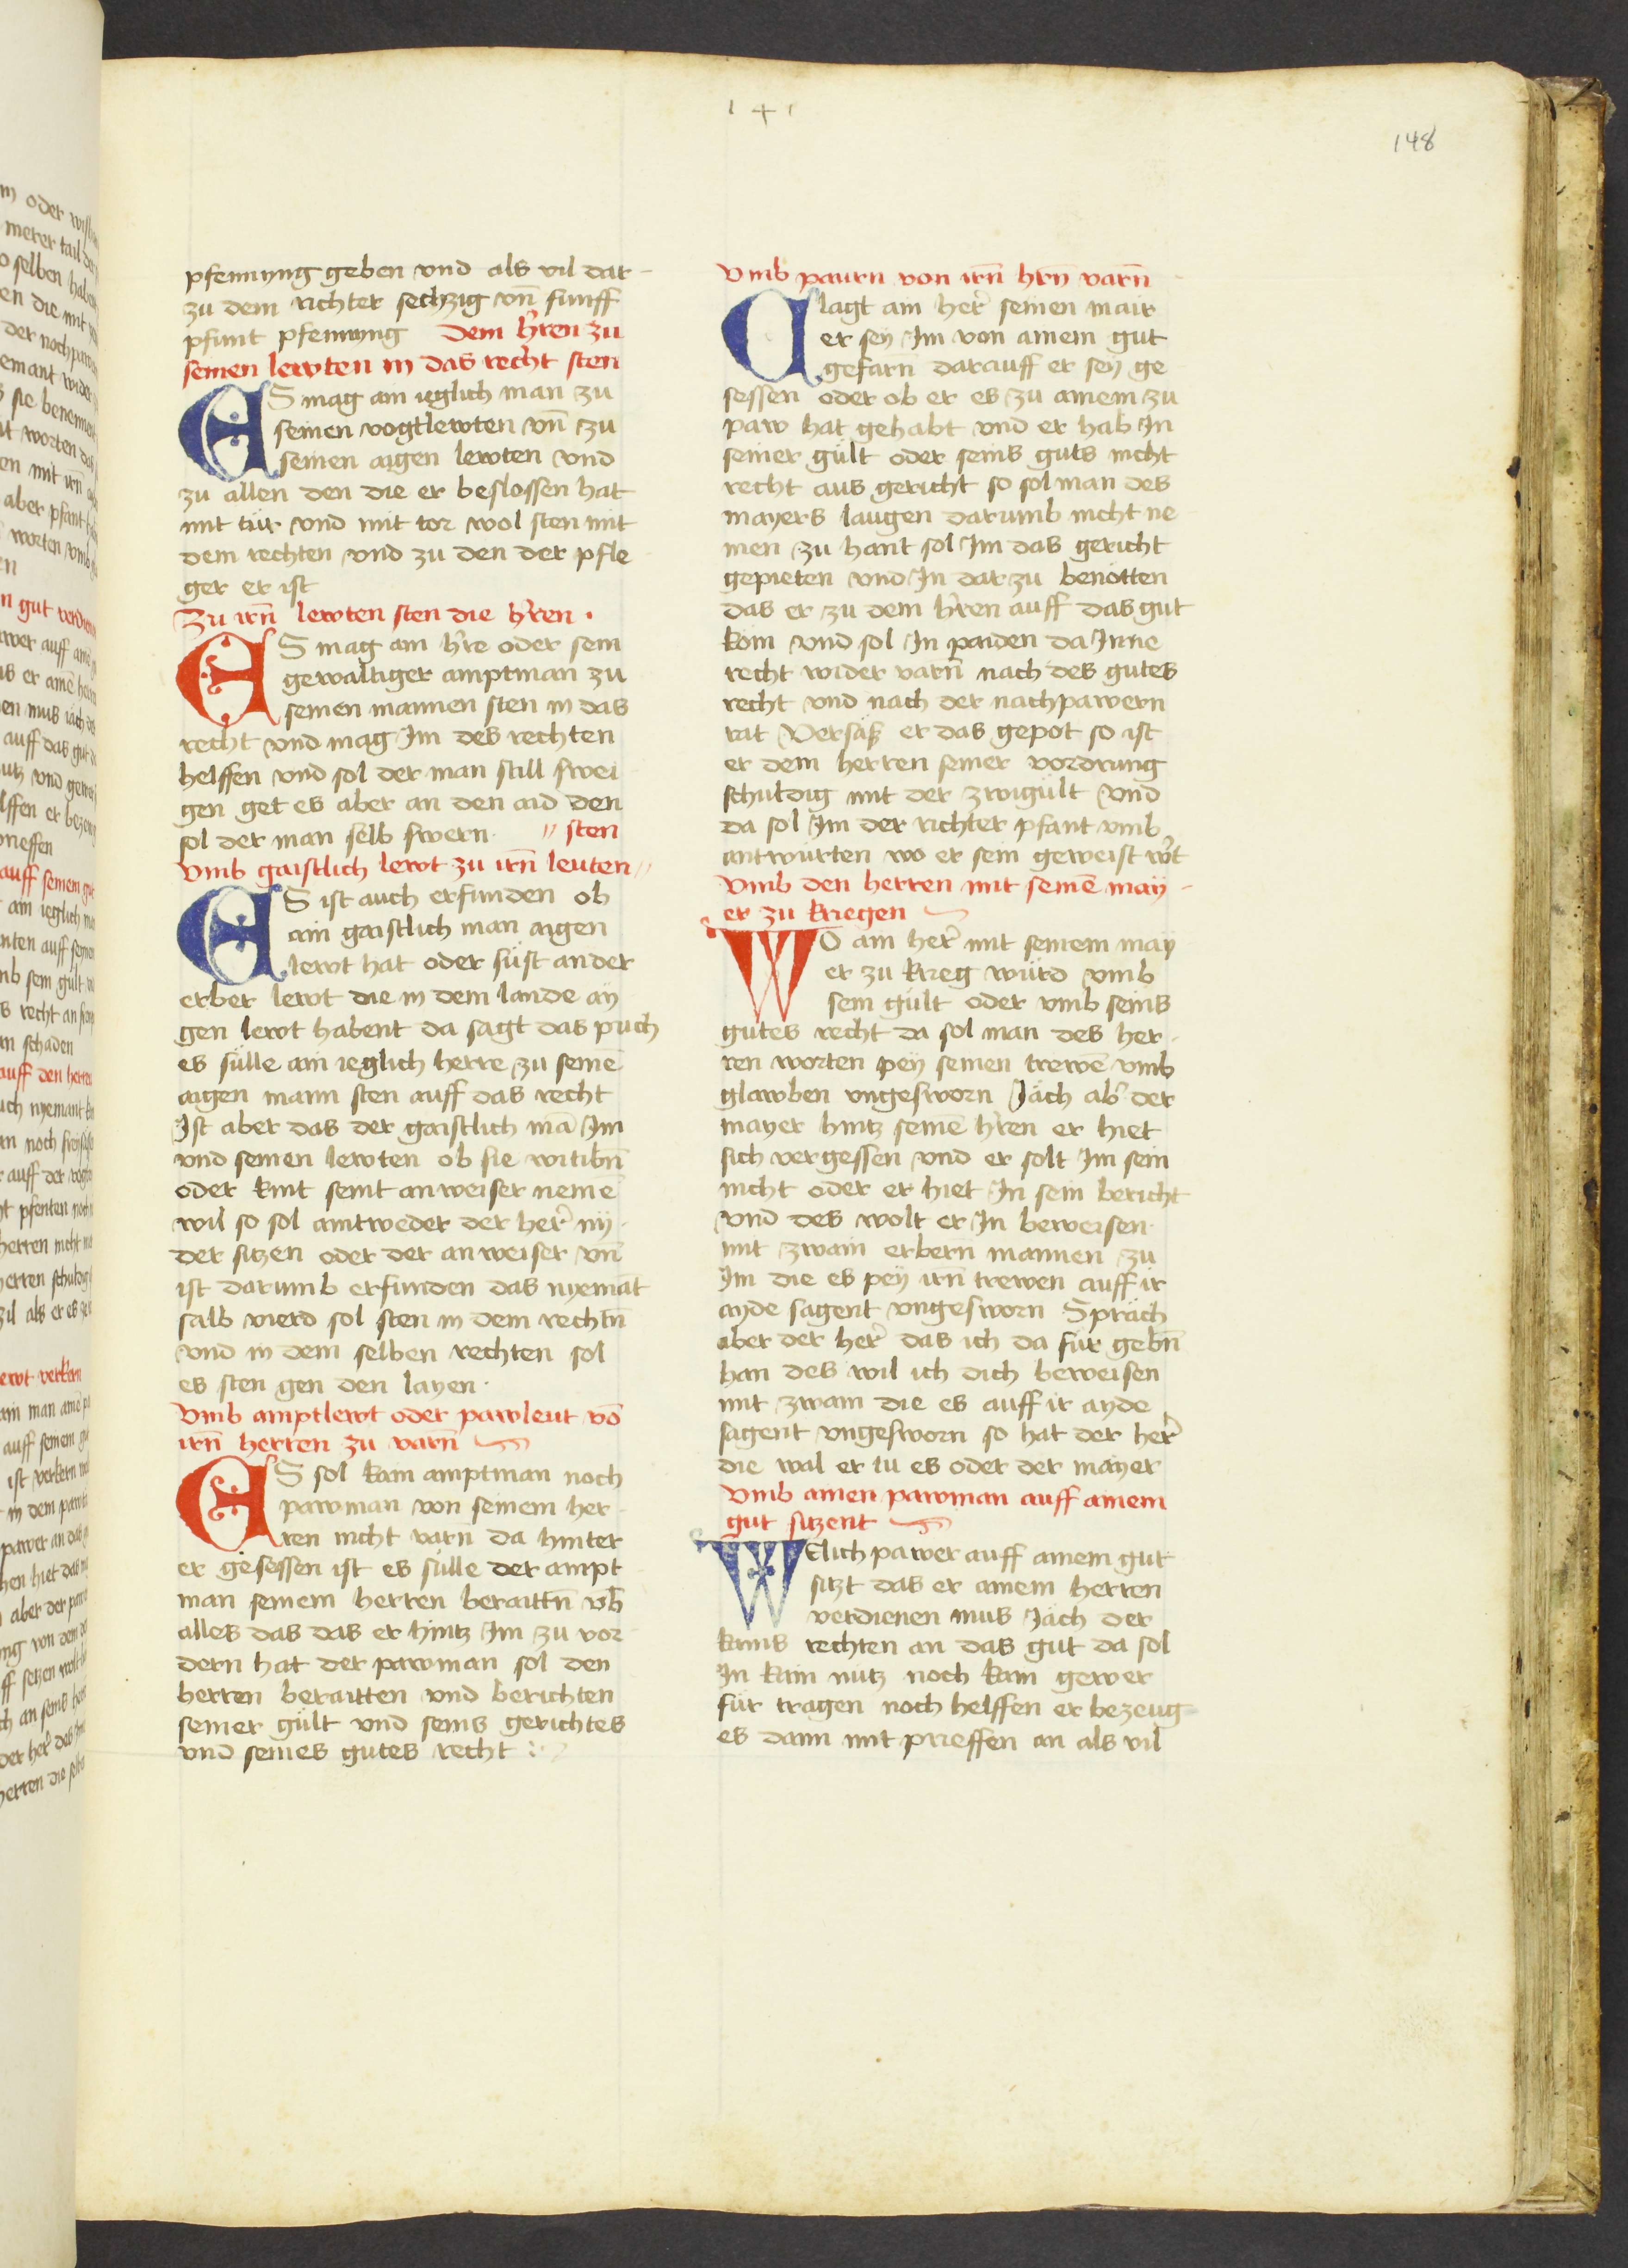 148
pfennyng geben vnd als vil dar-
zu dem richter sechzig vn̄ funff
pfunt pfennyng Dem h̓ren zu
seinen lewten in das recht sten
ES mag ain ieglich man zu
seinen vogtlewten vn̄ zu
seinen aigen lewten vnd
zu allen den die er beslossen hat
mit tür vnd mit tor wol sten mit
dem rechten vnd zu den der pfle
ger er ist
Zu irn̄ lewten sten die h̓ren ·
ES mag ain h̓re oder sein
gewaltiger amptman zu
seinen mannen sten in das
recht vnd mag Im des rechten
helffen vnd sol der man still swei
gen get es aber an den aid den
sol der man selb swern · // sten
Vmb gaistlich lewt zu irn̄ leuten //
ES ist auch erfunden ob
ain gaistlich man aigen
lewt hat oder süst ander
erber lewt die in dem lande ay
gen lewt habent da sagt das puch
es sülle ain ieglich herre zu seinē
aigen mann sten auff das recht
Ist aber das der gaistlich mā Im
vnd seinen lewten ob sie witibn̄
oder kint seint anweiser nemē
wil so sol aintweder der her̓ ny
der sitzen oder der anweiser vn̄
ist darumb erfunden das nyemāt
salb vierd sol sten in dem rechtn̄
vnd in dem selben rechten sol
es sten gen den layen ·
Vmb amptlewt oder pawleut vō
irn̄ herren zu varn̄
ES sol kain amptman noch
pawman von seinem her-
ren nicht varn da hinter
er gesessen ist es sülle der ampt
man seinem herren beraittn̄ vb̄
alles das das er hintz Im zu vor
dern hat der pawman sol den
herren beraitten vnd berichten
seiner gült vnd seins gerichtes
vnd seines gutes recht :
Vmb paurn von irn̄ hrn̄ varn̄
Clagt ain her̓ seinen mair
er sey Im von ainem gut
gefarn̄ darauff er sey ge
sessen oder ob er es zu ainem zu
paw hat gehabt vnd er hab In
seiner gült oder seins guts nicht
recht aus gericht so sol man des
mayers laugen darumb nicht ne
men zu hant sol Im das gericht
gepieten vnd In dar zu benötten
das er zu dem h̓ren auff das gut
kom vnd sol In paiden da Inne
recht wider varn̄ nach des gutes
recht vnd nach der nachpawern
rat Versäss er das gepot so ist
er dem herren seiner vordrung
schuldig mit der zwigült vnd
da sol Im der richter pfant vmb
antwürten wo er sein geweist w̓t
Vmb den herren mit seinē may-
er zu kriegen
WO ain her̓ mit seinem may
er zu krieg würd vmb
sein gült oder vmb seins
gutes recht da sol man des her-
ren worten pey seinen trewē vmb
glawben vngesworn Jäch ab̓ der
mayer hintz seinē h̓ren er hiet
sich vergessen vnd er solt Im sein
nicht oder er hiet In sein bericht
vnd des wolt er In beweisen
mit zwain erbern̄ mannen zu
Im die es pey irn̄ trewen auff ir
ayde sagent vngesworn Spräch
aber der her̓ das ich da für gebn̄
han des wil ich dich beweisen
mit zwain die es auff ir ayde
sagent vngesworn so hat der her̓
die wal er tu es oder der mayer
Vmb ainen pawman auff ainem
gut sitzent
WElich pawer auff ainem gut
sitzt das er ainem herren
verdienen mus Jäch der
kains rechten an das gut da sol
In kain nutz noch kain gewer
für tragen noch helffen er bezeug
es dann mit prieffen an als vil